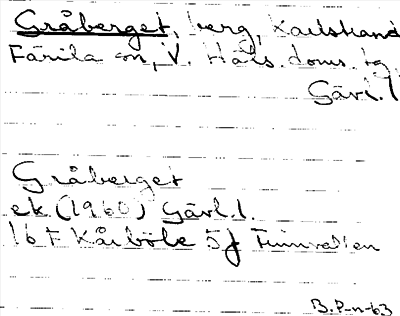 Gråberget, berg, Karlstrand
Färila sn, V. Häls. doms. tg
Gävl. l
Gråberget
ek. (1960) Gävl. l.
16 F Kårböle 5 f Finnvallen
B. P-n-63